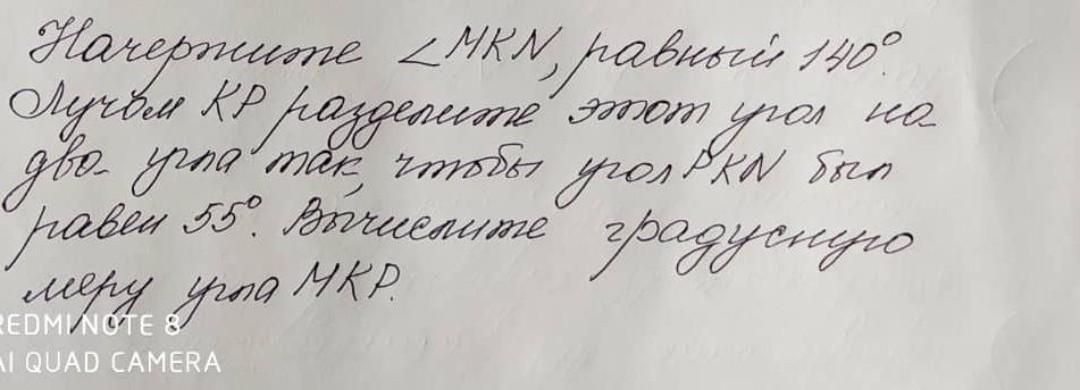 Начертите ∠MKN, равный 140°.
Лучом KP разделите этот угол на
два угла так, чтобы угол PKN был
равен 55°. Вычислите градусную
меру угла MKP.
REDMI NOTE 8
AI QUAD CAMERA